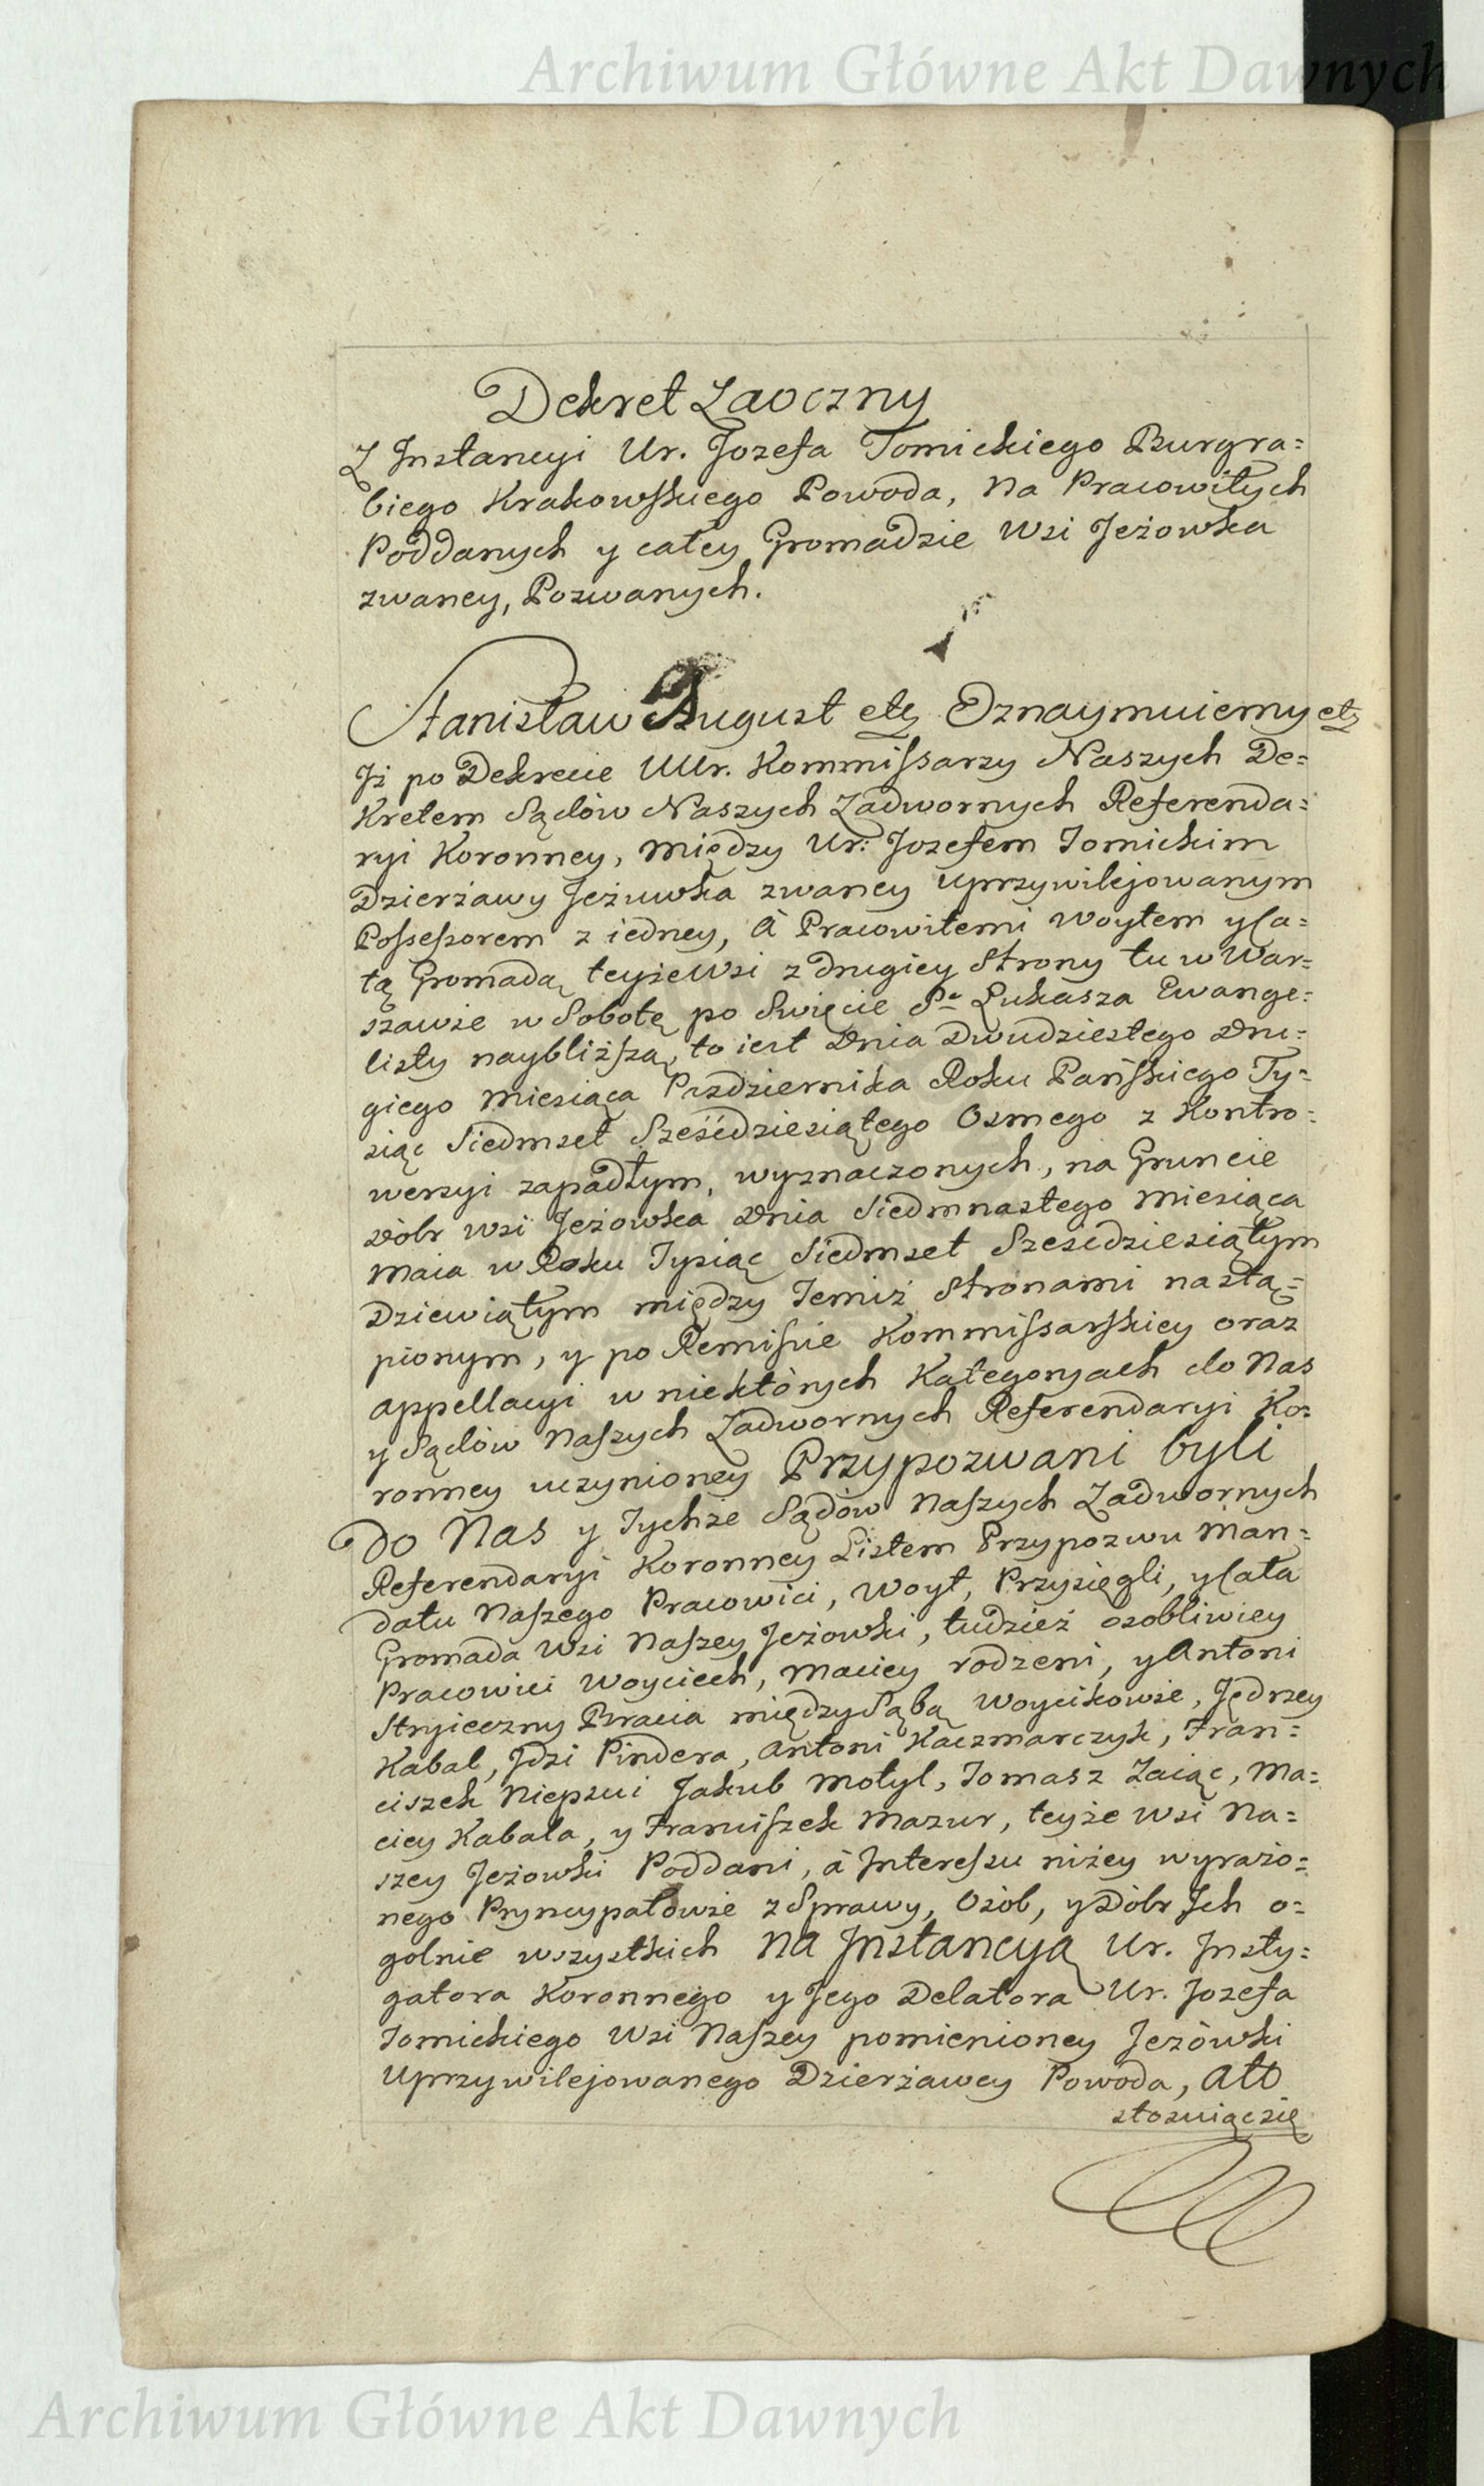 Archiwum Główne Akt Dawnych
Dekret Zaoczny
Z Instancyi Ur. Jozefa Tomickiego Burgra=
biego Krakowskiego Powoda, Na Pracowitych
Poddanych y całey Gromadzie Wsi Jeżowka
zwaney, Pozwanych.
Stanisław August etc Oznaymuiemy etc
Jż po Dekrecie UUr. Kommissarzy Naszych De=
kretem Sądów Naszych Zadwornych Referenda=
ryi Koronney, między Ur: Jozefem Tomickim
Dzierżawy Jeżuwka zwaney uprzywilejowanym
Possessorem z iedney, à Pracowitemi Woytem y Ca=
łą Gromadą teyże Wsi z drugiey Strony tu w War=
szawie w Sobotę po Swięcie So Łukasza Ewange=
listy naybliższą, to iest Dnia Dwudziestego Dru=
giego Miesiąca Pazdziernika Roku Pańskiego Ty=
siąc Siedmset Sześćdziesiątego Osmego z Kontro=
wersyi zapadłym, wyznaczonych, na Gruncie
Dóbr Wsi Jeżowka Dnia Siedmnastego Miesiąca
Maia w Roku Tysiąc Siedmset Sześćdziesiątym
Dziewiątym między Temiż Stronami nastą=
pionym, y po Remissie Kommissarskiey oraz
appellacyi w niektórych Kategoryach do Nas
y Sądów Naszych Zadwornych Referendaryi Ko=
ronney uczynioney Przypozwani byli
Do Nas y Tychże Sądów Naszych Zadwornych
Referendaryi Koronney Listem Przypozwu Man=
datu Naszego Pracowici, Woyt, Przysięgli, y Cała
Gromada Wsi Naszey Jeżowki, tudzież osobliwiey
Pracowici Woyciech, Maciey rodzeni, y Antoni
Stryieczny Bracia między Sąbą Woycikowie, Jędrzey
Kabal, Jdzi Pindera, Antoni Kaczmarczyk, Fran=
ciszek Niepsui Jakub Motyl, Tomasz Zaiąc, Ma=
ciey Kabala, y Franciszek Mazur, teyże Wsi Na=
szey Jeżowki Poddani, à Interessu niżey wyrażo=
nego Pryncypałowie z Sprawy, Osób, y Dóbr Jch o=
golnie wszystkich Na Jnstancyą Ur. Jnsty=
gatora Koronnego y Jego Delatora Ur. Jozefa
Tomickiego Wsi Naszey pomienioney Jeżówki
Uprzywilejowanego Dzierżawcy Powoda, Ato
stosuiąc się
Archiwum Główne Akt Dawnych